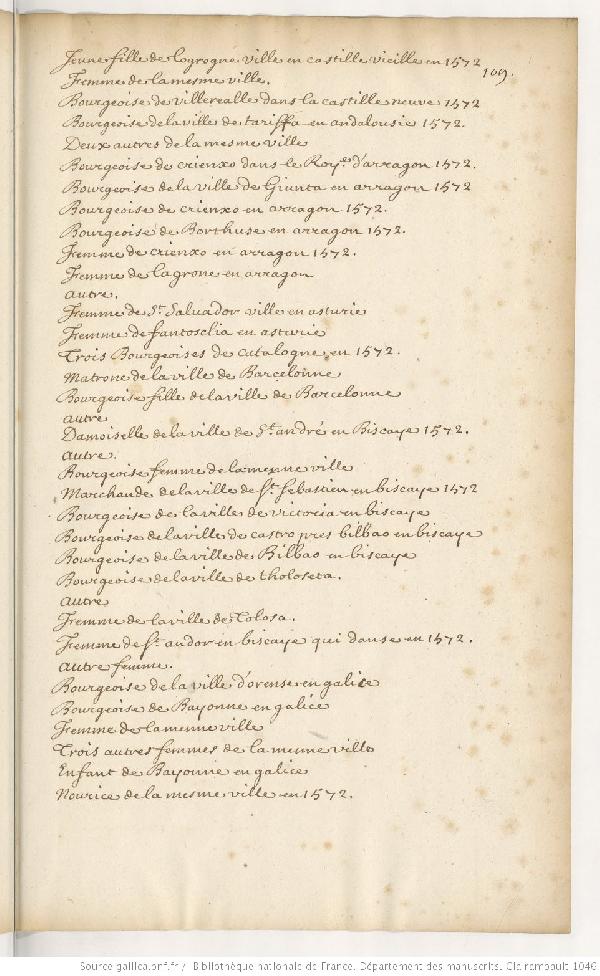 Jeune fille de logrogne ville en castille vieille en 1572
109.
Femme de la mesme ville.
Bourgeoise de villerealle dans la castille neuve 1572
Bourgeoise de la ville de tariffa en andalousie 1572.
Deux autres de la mesme ville
Bourgeoise de crienxo dans le Roy.e d'arragon 1572.
Bourgeoise de la ville de Giunta en arragon 1572
Bourgeoise de crienxo en arragon 1572.
Bourgeoise de Borthuse en arragon 1572.
Femme de crienxo en arragon 1572.
Femme de lagrone en arragon
autre.
Femme de St. Salvador ville en asturie
Femme de fantosclia en asturie
Trois Bourgeoises de catalogne en 1572.
Matrone de la ville de Barcelonne
Bourgeoise fille de la ville de Barcelonne
autre
Damoiselle de la ville de St. andré en Biscaye 1572.
autre.
Bourgeoise femme de la mesme ville
Marchande de la ville de St. sebastien en biscaye 1572
Bourgeoise de la ville de victoria en biscaye
Bourgeoise de la ville de castro pres bilbao en biscaye
Bourgeoise de la ville de Bilbao en biscaye
Bourgeoise de la ville de tholoseta.
autre
Femme de la ville de Tolosa.
Femme de St. andor en biscaye qui danse en 1572.
autre femme.
Bourgeoise de la ville d'orense en galice
Bourgeoise de Bayonne en galice
Femme de la mesme ville
Trois autres femmes de la mesme ville
Enfant de Bayonne en galice
Nourice de la mesme ville en 1572.
Source gallica.bnf.fr / Bibliothèque nationale de France. Département des manuscrits. Clairambault 1046